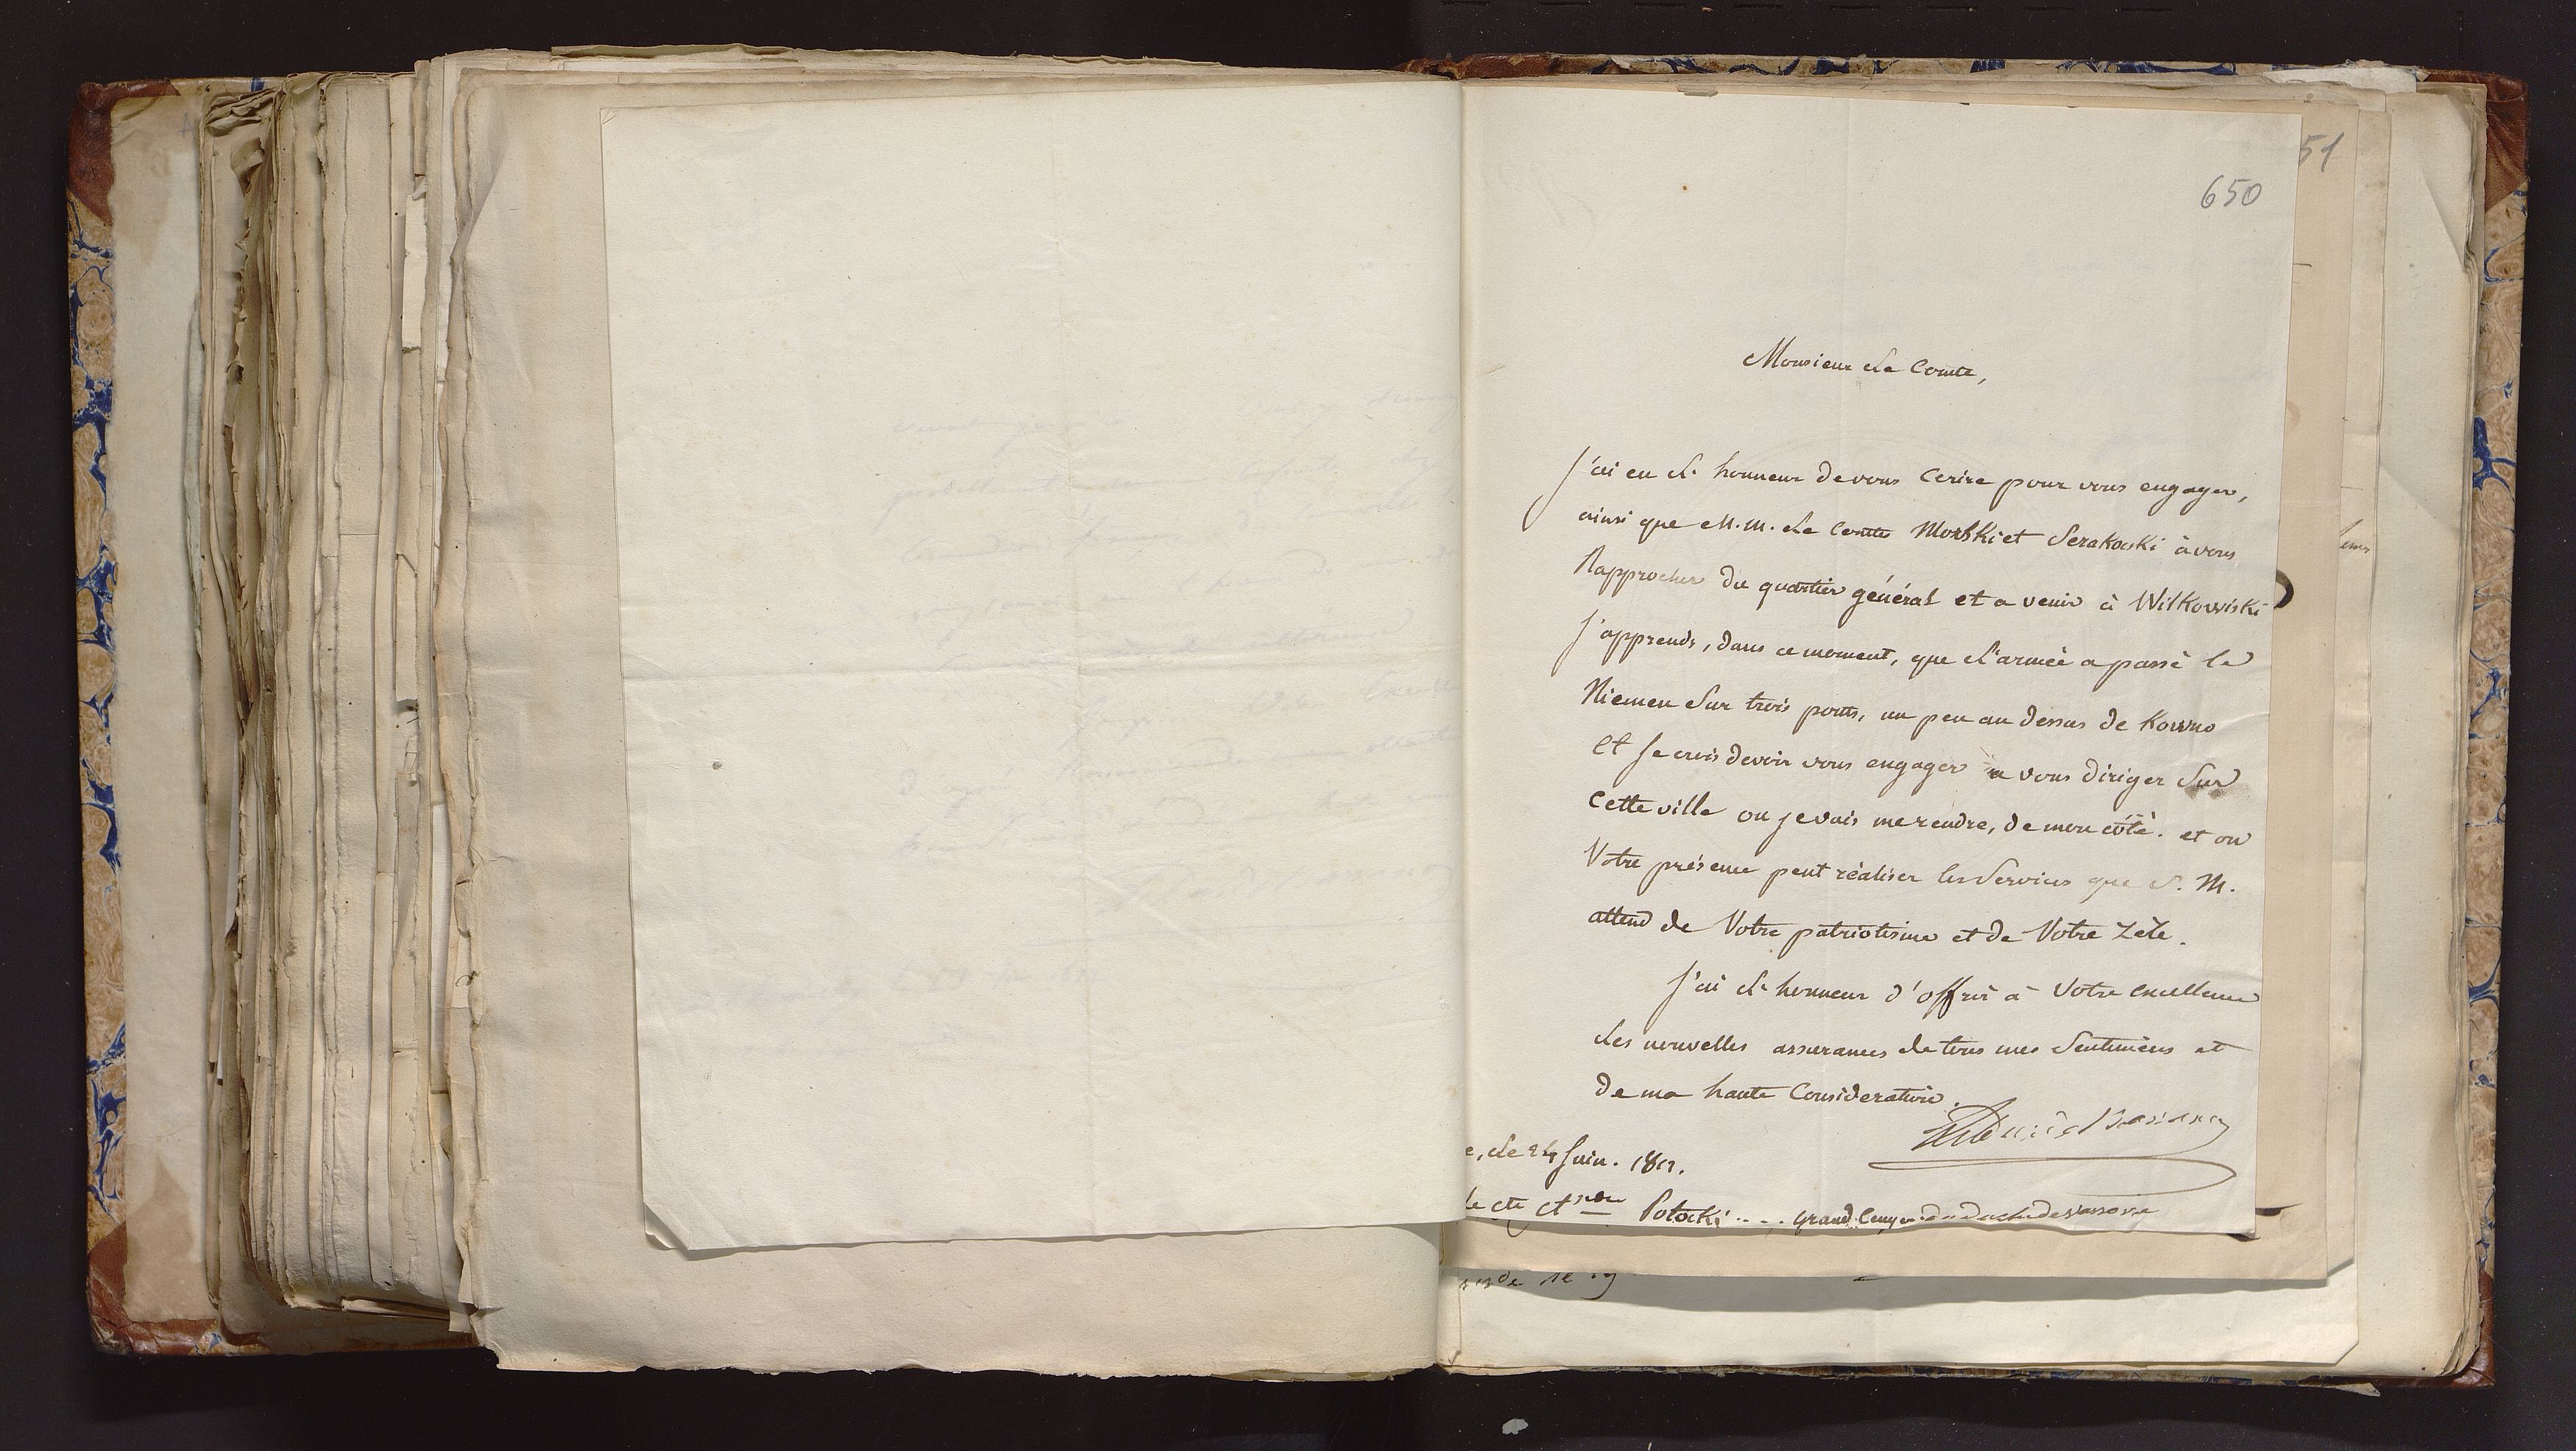 51
650
Monsieur Le Comte,
J'ai eu L'honneur de vous Ecrire pour vous engager,
ainsi que M.M. Le Comte Morski et Serakoski à vous
Rapprocher du quartier général et a venir à Wilkowiski
J'apprends, dans ce moment, que L'armée a passé le
Niemen Sur trois ponts, un peu au dessus de Kowno
Et Je crois devoir vous engager a vous diriger Sur
Cette ville ou je vais me rendre, de mon côté. et ou
Votre présence peut réaliser les Services que S. M.
attend de Votre patriotisme et de Votre Zèle.
J'ai L'honneur d'offrir à Votre Excellence
Les nouvelles assurances de tous mes Sentimens et
de ma haute Consideration.
Le Duc de Bassano
e, Le 24 Juin. 1812.
le Cte Potocki grand Ecuyer du duché de Varsovie